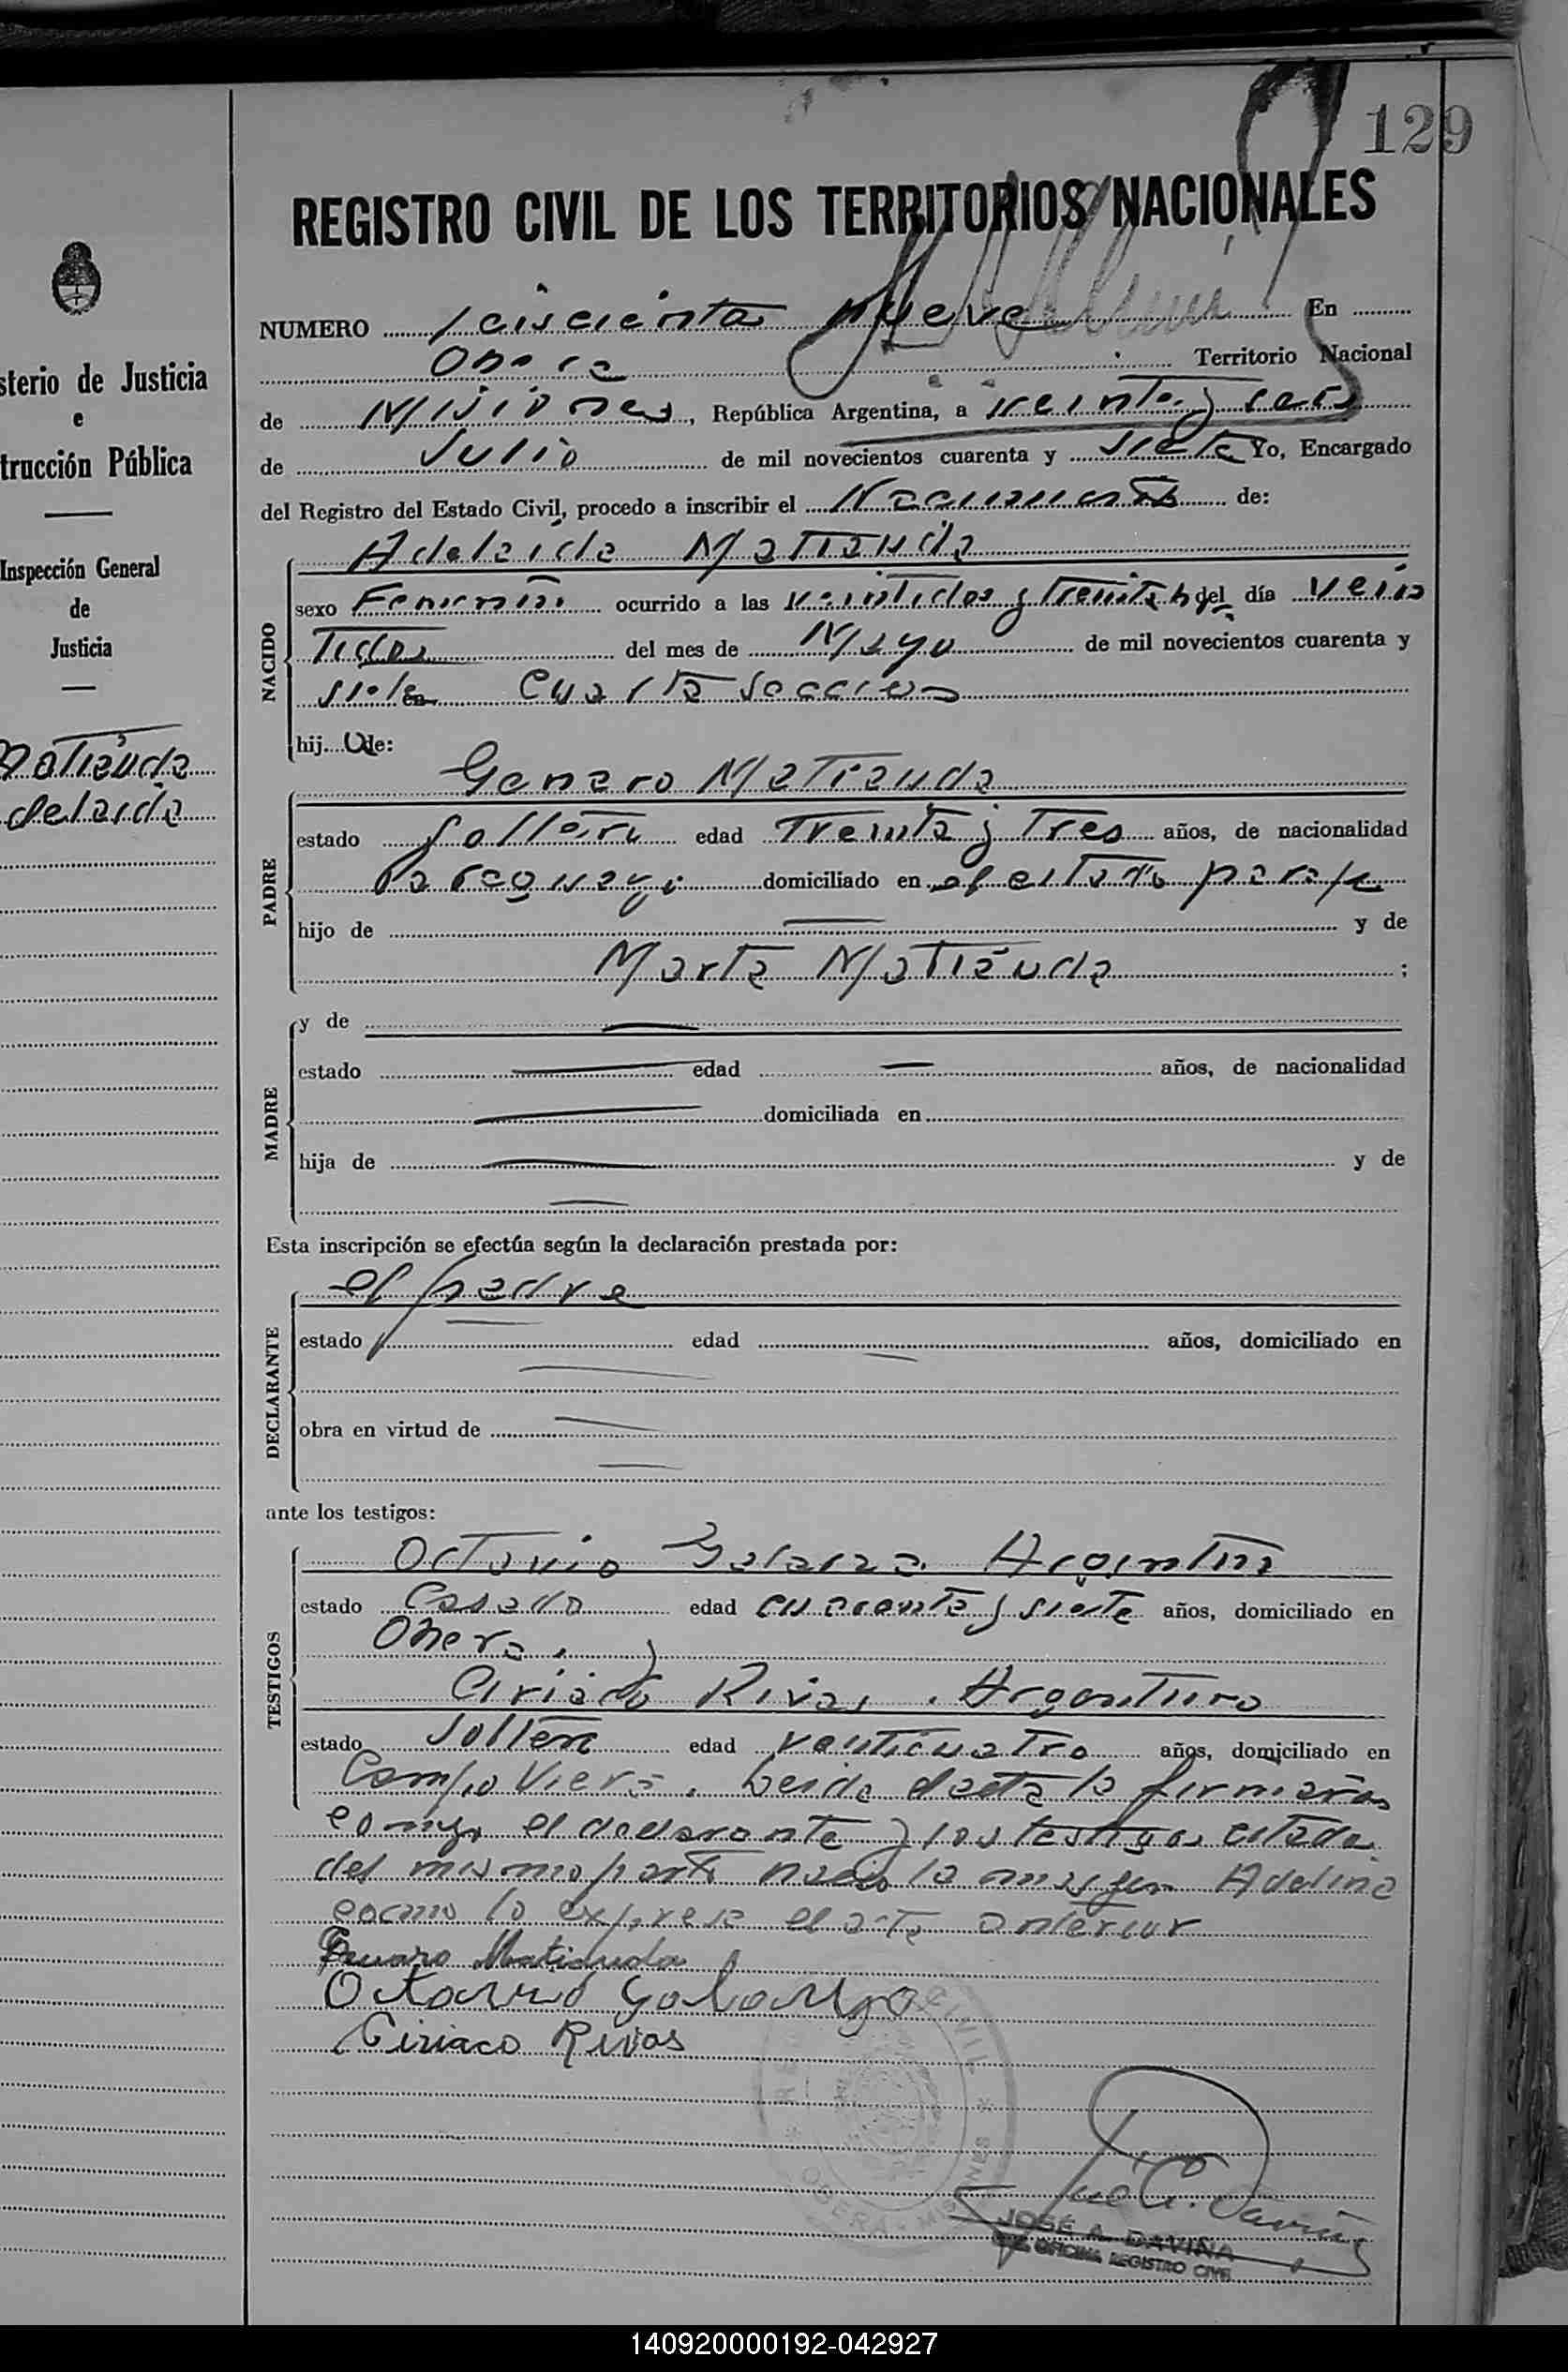 129
REGISTRO CIVIL DE LOS TERRITORIOS NACIONALES
NUMERO seiscientos nueve En
Obera Territorio Nacional
de Misiones, República Argentina, a veinte y seis
de Julio de mil novecientos cuarenta y siete Yo, Encargado
del Registro del Estado Civil, procedo a inscribir el Nacimiento de:
NACIDO
Adelaida Matiauda
sexo Femenino ocurrido a las veintidos y treinta h del día vein
tidos del mes de Mayo de mil novecientos cuarenta y
siete Cuarta Seccion
hij a de:
PADRE
Genaro Matiauda
estado soltero edad treinta y tres años, de nacionalidad
Paraguayo domiciliado en el citado paraje
hijo de y de
Marta Matiauda ;
MADRE
y de
estado edad años, de nacionalidad
domiciliada en
hija de y de
Esta inscripción se efectúa según la declaración prestada por:
DECLARANTE
el padre
estado edad años, domiciliado en
obra en virtud de
ante los testigos:
TESTIGOS
Octavio Galarza Argentino
estado Casado edad cuarenta y siete años, domiciliado en
Obera. y
Ciriaco Rivas, Argentino
estado soltero edad veinticuatro años, domiciliado en
Campo Viera. Leida el acta la firmaron
conmigo el declarante y los testigos citados
del mismo parto nacio la Adelina
como lo expresa el acta anterior
Genaro Matiauda
Octavio Galarza
Ciriaco Rivas
OBERA - MISIONES
José A. Daviña
JOSÉ A. DAVIÑA
OFICINA REGISTRO CIVIL
sterio de Justicia
e
trucción Pública
Inspección General
de
Justicia
Matiauda
delaida
140920000192-042927